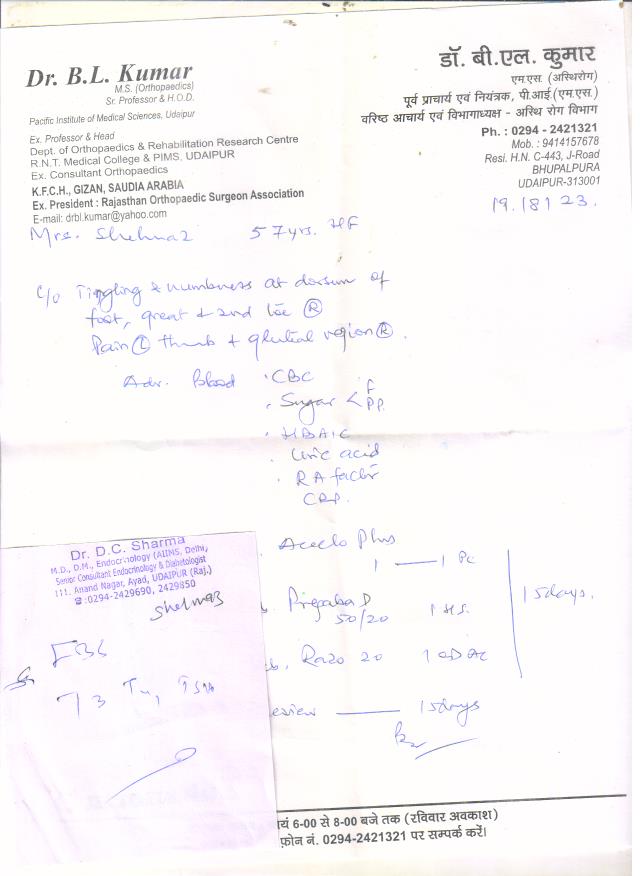 Dr. B.L. Kumar
M.S. (Orthopaedics)
Sr. Professor & H.O.D.
Pacific Institute of Medical Sciences, Udaipur
Ex. Professor & Head
Dept. of Orthopaedics & Rehabilitation Research Centre
R.N.T. Medical College & PIMS, UDAIPUR
Ex. Consultant Orthopaedics
K.F.C.H., GIZAN, SAUDIA ARABIA
Ex. President : Rajasthan Orthopaedic Surgeon Association
E-mail: drbl.kumar@yahoo.com
डॉ. बी.एल. कुमार
एम.एस. (अस्थिरोग)
पूर्व प्राचार्य एवं नियंत्रक, पी.आई.(एम.एस.)
वरिष्ठ आचार्य एवं विभागाध्यक्ष - अस्थि रोग विभाग
Ph. : 0294 - 2421321
Mob. : 9414157678
Resi. H.N. C-443, J-Road
BHUPALPURA
UDAIPUR-313001
Mrs. Shehnaz 57yrs. HF
c/o Tingling & numbness at dorsum of
foot, great & 2nd toe Ⓡ
Pain Ⓛ thumb + gluteal region Ⓡ.
Adv. Blood . CBC
. Sugar < F
PP.
. HBA1C
. Uric acid
. RA factor
CRP.
Aceclo Plus
1 — 1 PC
Pregaba D
50/20 1 HS.
Razo 20 1 OD AC
15days.
eview — 15days
Dr. D.C. Sharma
M.D., D.M., Endocrinology (AIINS, Delhi)
Senior Consultant Endocrinology & Diabetologist
111, Anand Nagar, Ayad, UDAIPUR (Raj.)
☎:0294-2429690, 2429850
Shehnaz
FBS
T3 T4, TSH
यं 6-00 से 8-00 बजे तक (रविवार अवकाश)
फ़ोन नं. 0294-2421321 पर सम्पर्क करें।